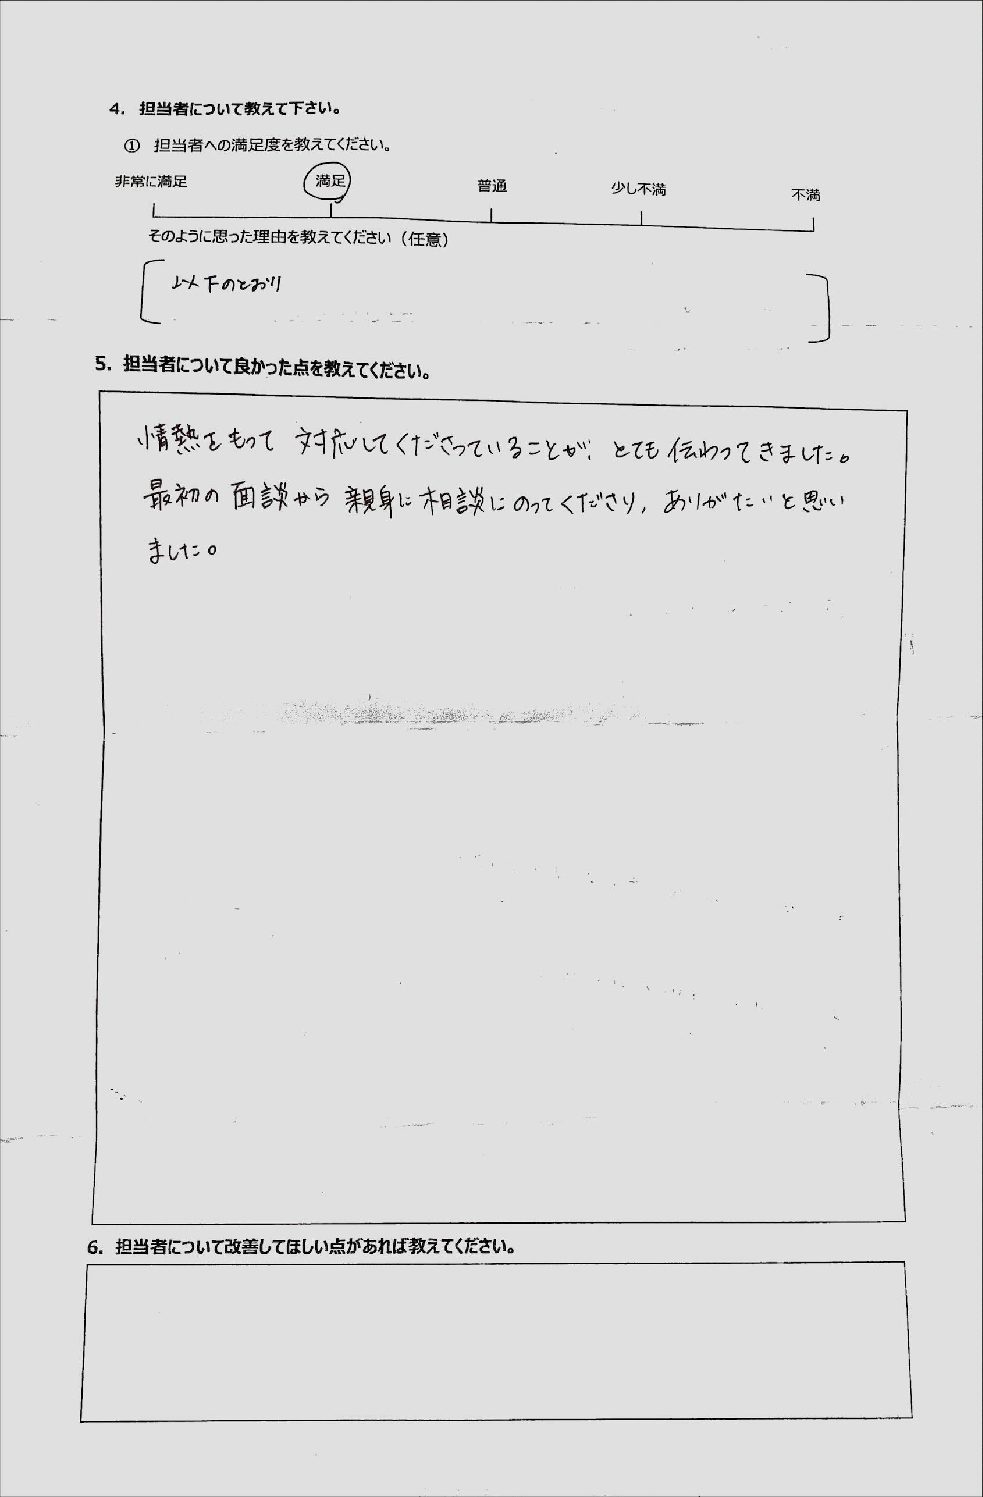 4. 担当者について教えて下さい。
① 担当者への満足度を教えてください。
非常に満足 満足 普通 少し不満 不満
そのように思った理由を教えてください（任意）
以下のとおり
5. 担当者について良かった点を教えてください。
情熱をもって対応してくださっていることが、とても伝わってきました。
最初の面談から親身に相談にのってくださり，ありがたいと思い
ました。
6. 担当者について改善してほしい点があれば教えてください。